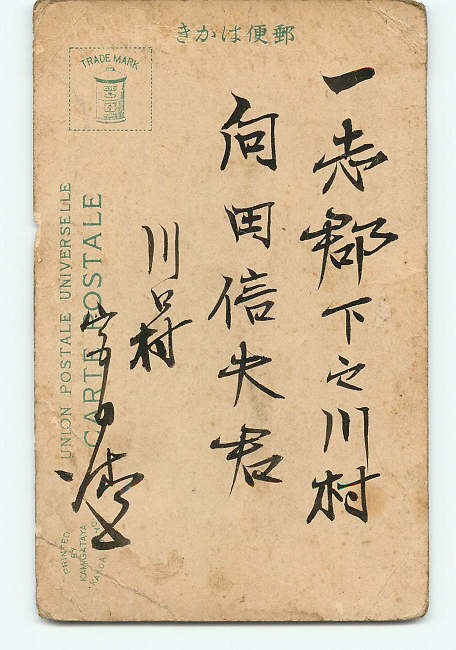 きかは便郵
TRADE MARK
一志郡下之川村
向田信夫君
川口村
UNION POSTALE UNIVERSELLE
CARTE POSTALE
PRINTED
BY
KAMIGATAYA
KANDA